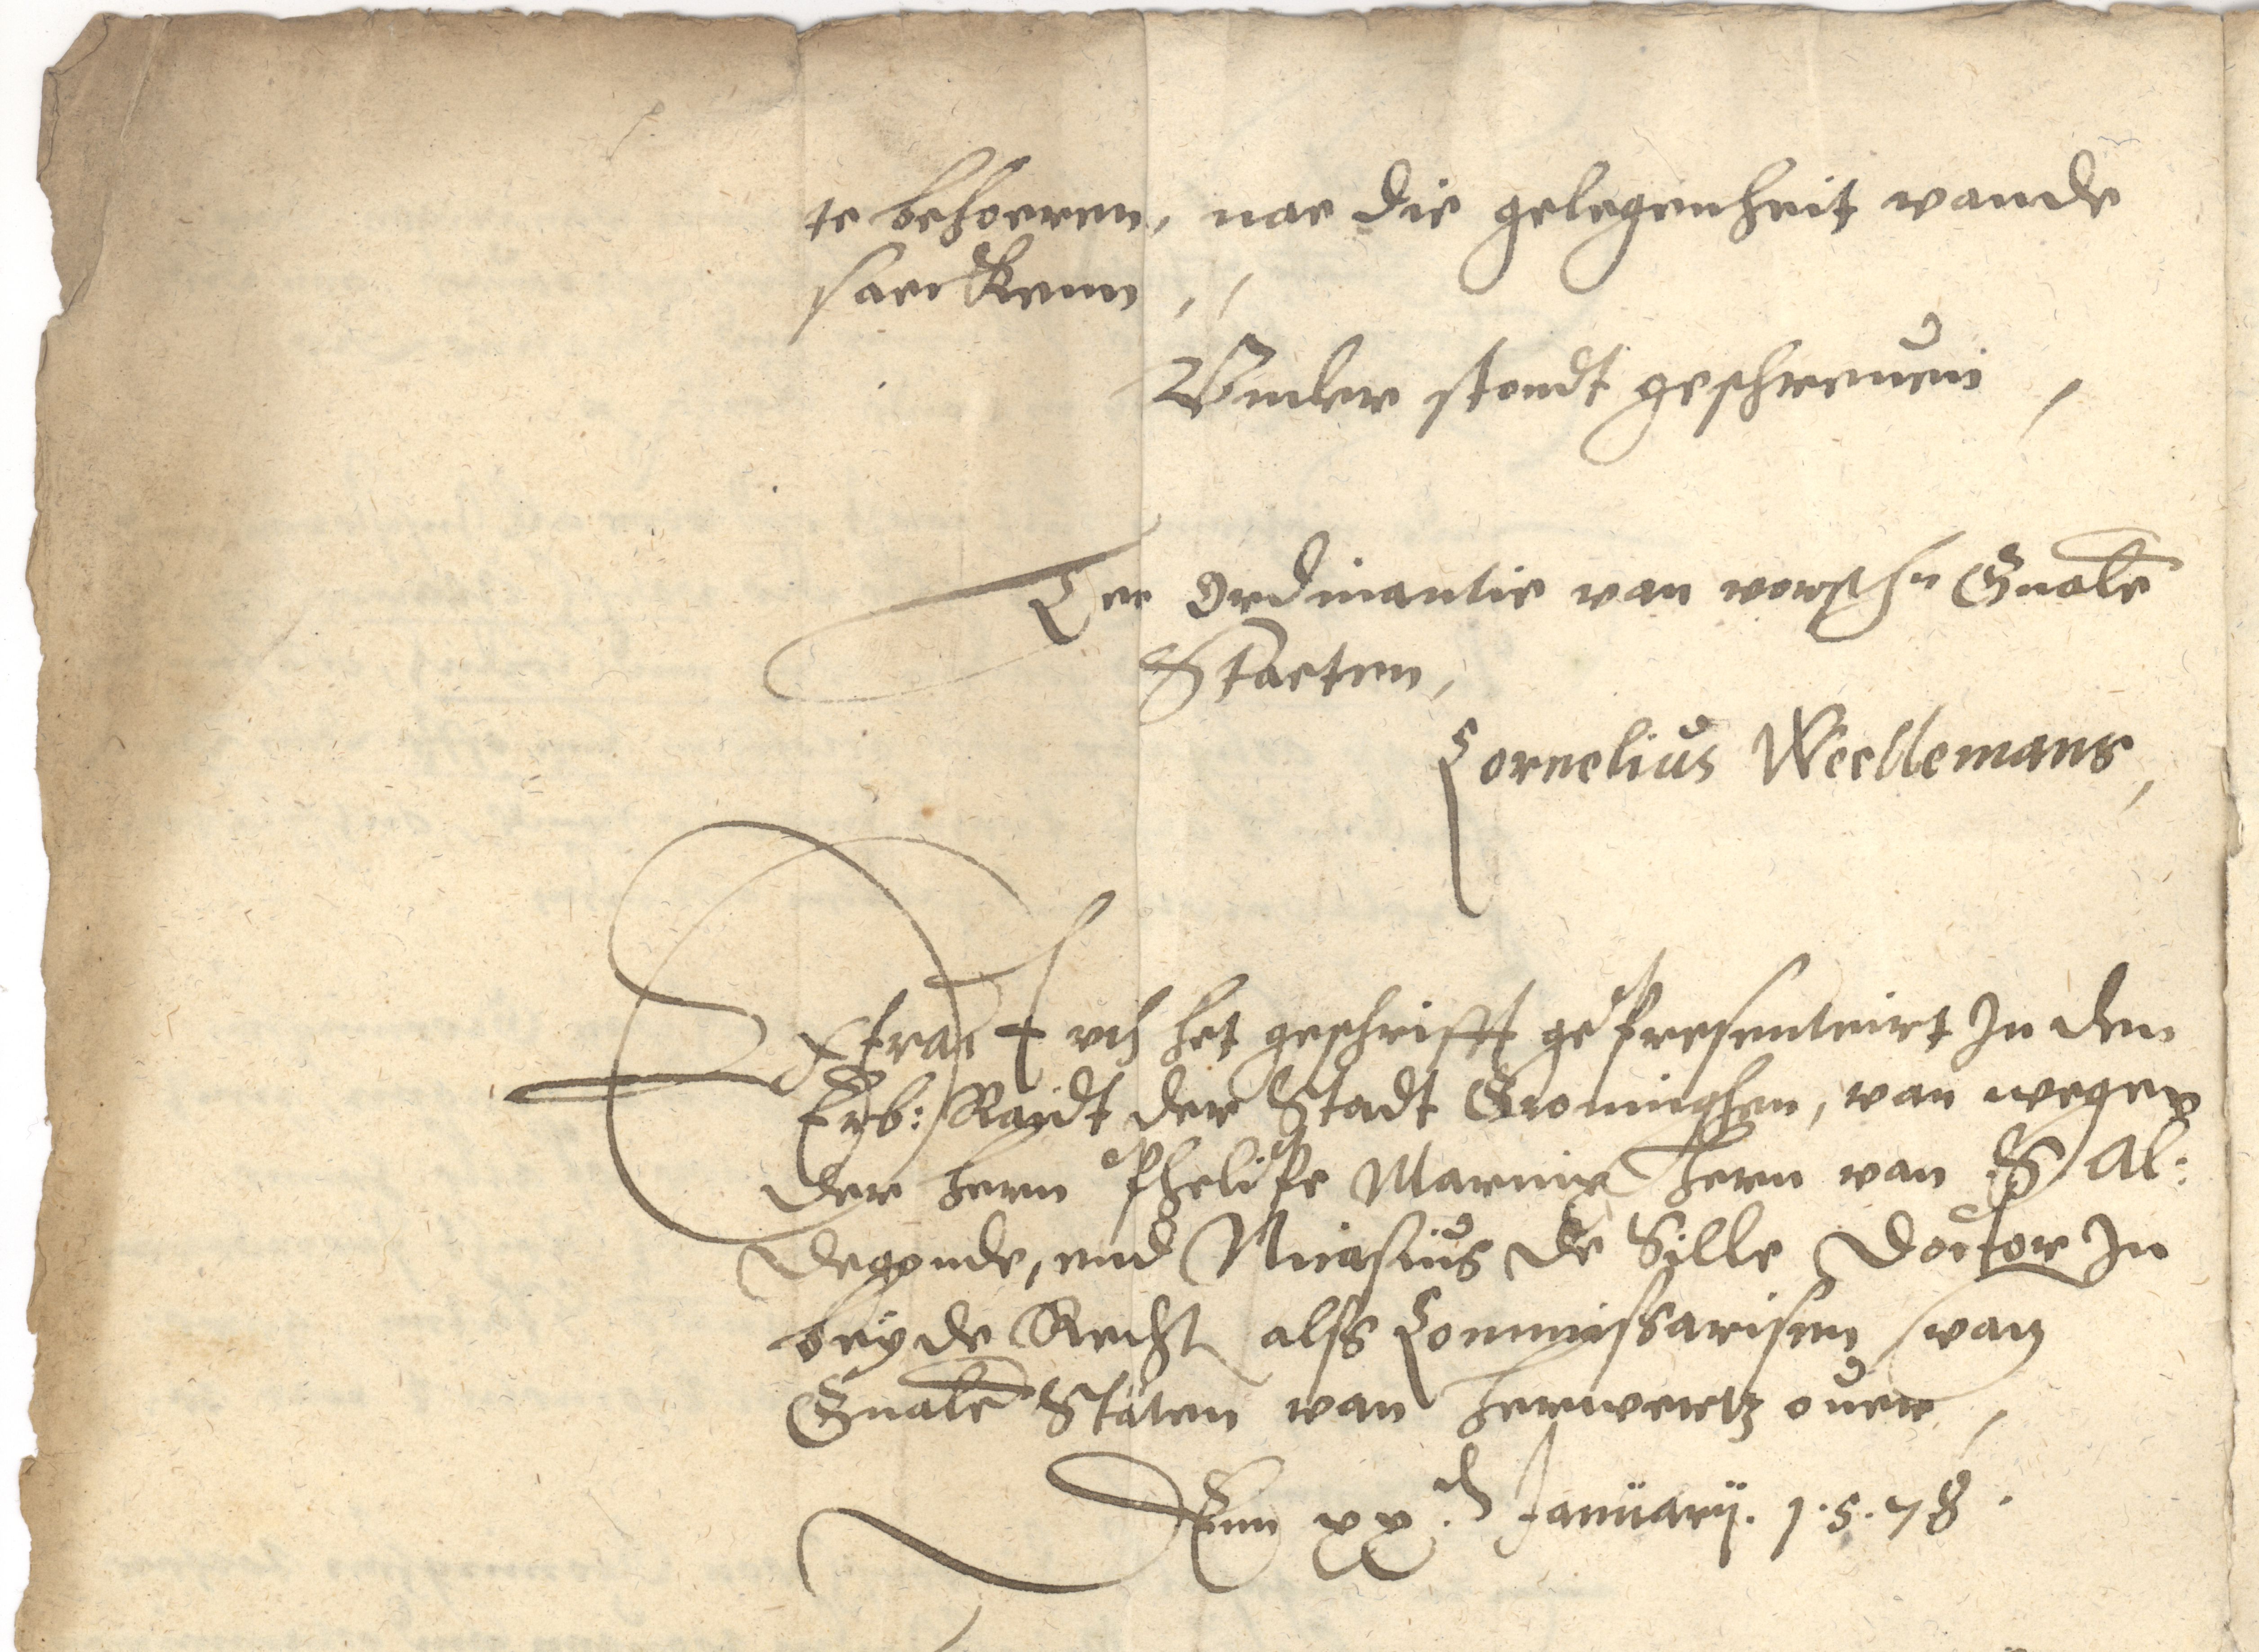 te behoeren, nae die gelegenheit vande
saeckenn,,
Vnder stondt geschreuen,
Ter Ordinantie van vorsch:n Gnale
Staeten,
Cornelius Weellemans,
Extract vth het geschrifft gepresenteirt In den
Erb: Raidt der Stadt Groninghen, van wegen
der hern Phelipe Marnix hern van S Al:
degonde, end Nicasius de Sille Doctor In
beyde Recht alss Commissarisen van
Gnale Stäten van herwertz ouer,
Denn xx.ch Januarij. 1.5.78.